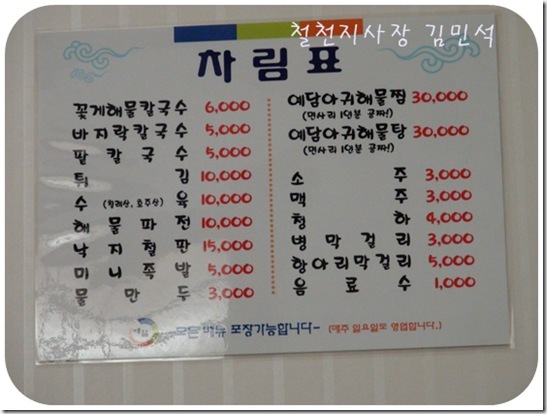 철천지사장 김민석
차림표
꽃게해물칼국수 6,000
바지락칼국수 5,000
팥칼국수 5,000
튀김 10,000
수(칠레산, 호주산)육 10,000
해물파전 10,000
낙지철판 15,000
미니족발 5,000
물만두 3,000
예담아귀해물찜 30,000
(면사리 1인분 공짜!)
예담아귀해물탕 30,000
(면사리 1인분 공짜!)
소주 3,000
맥주 3,000
청하 4,000
병막걸리 3,000
항아리막걸리 5,000
음료수 1,000
-모든메뉴 포장가능합니다- (매주 일요일도 영업합니다.)